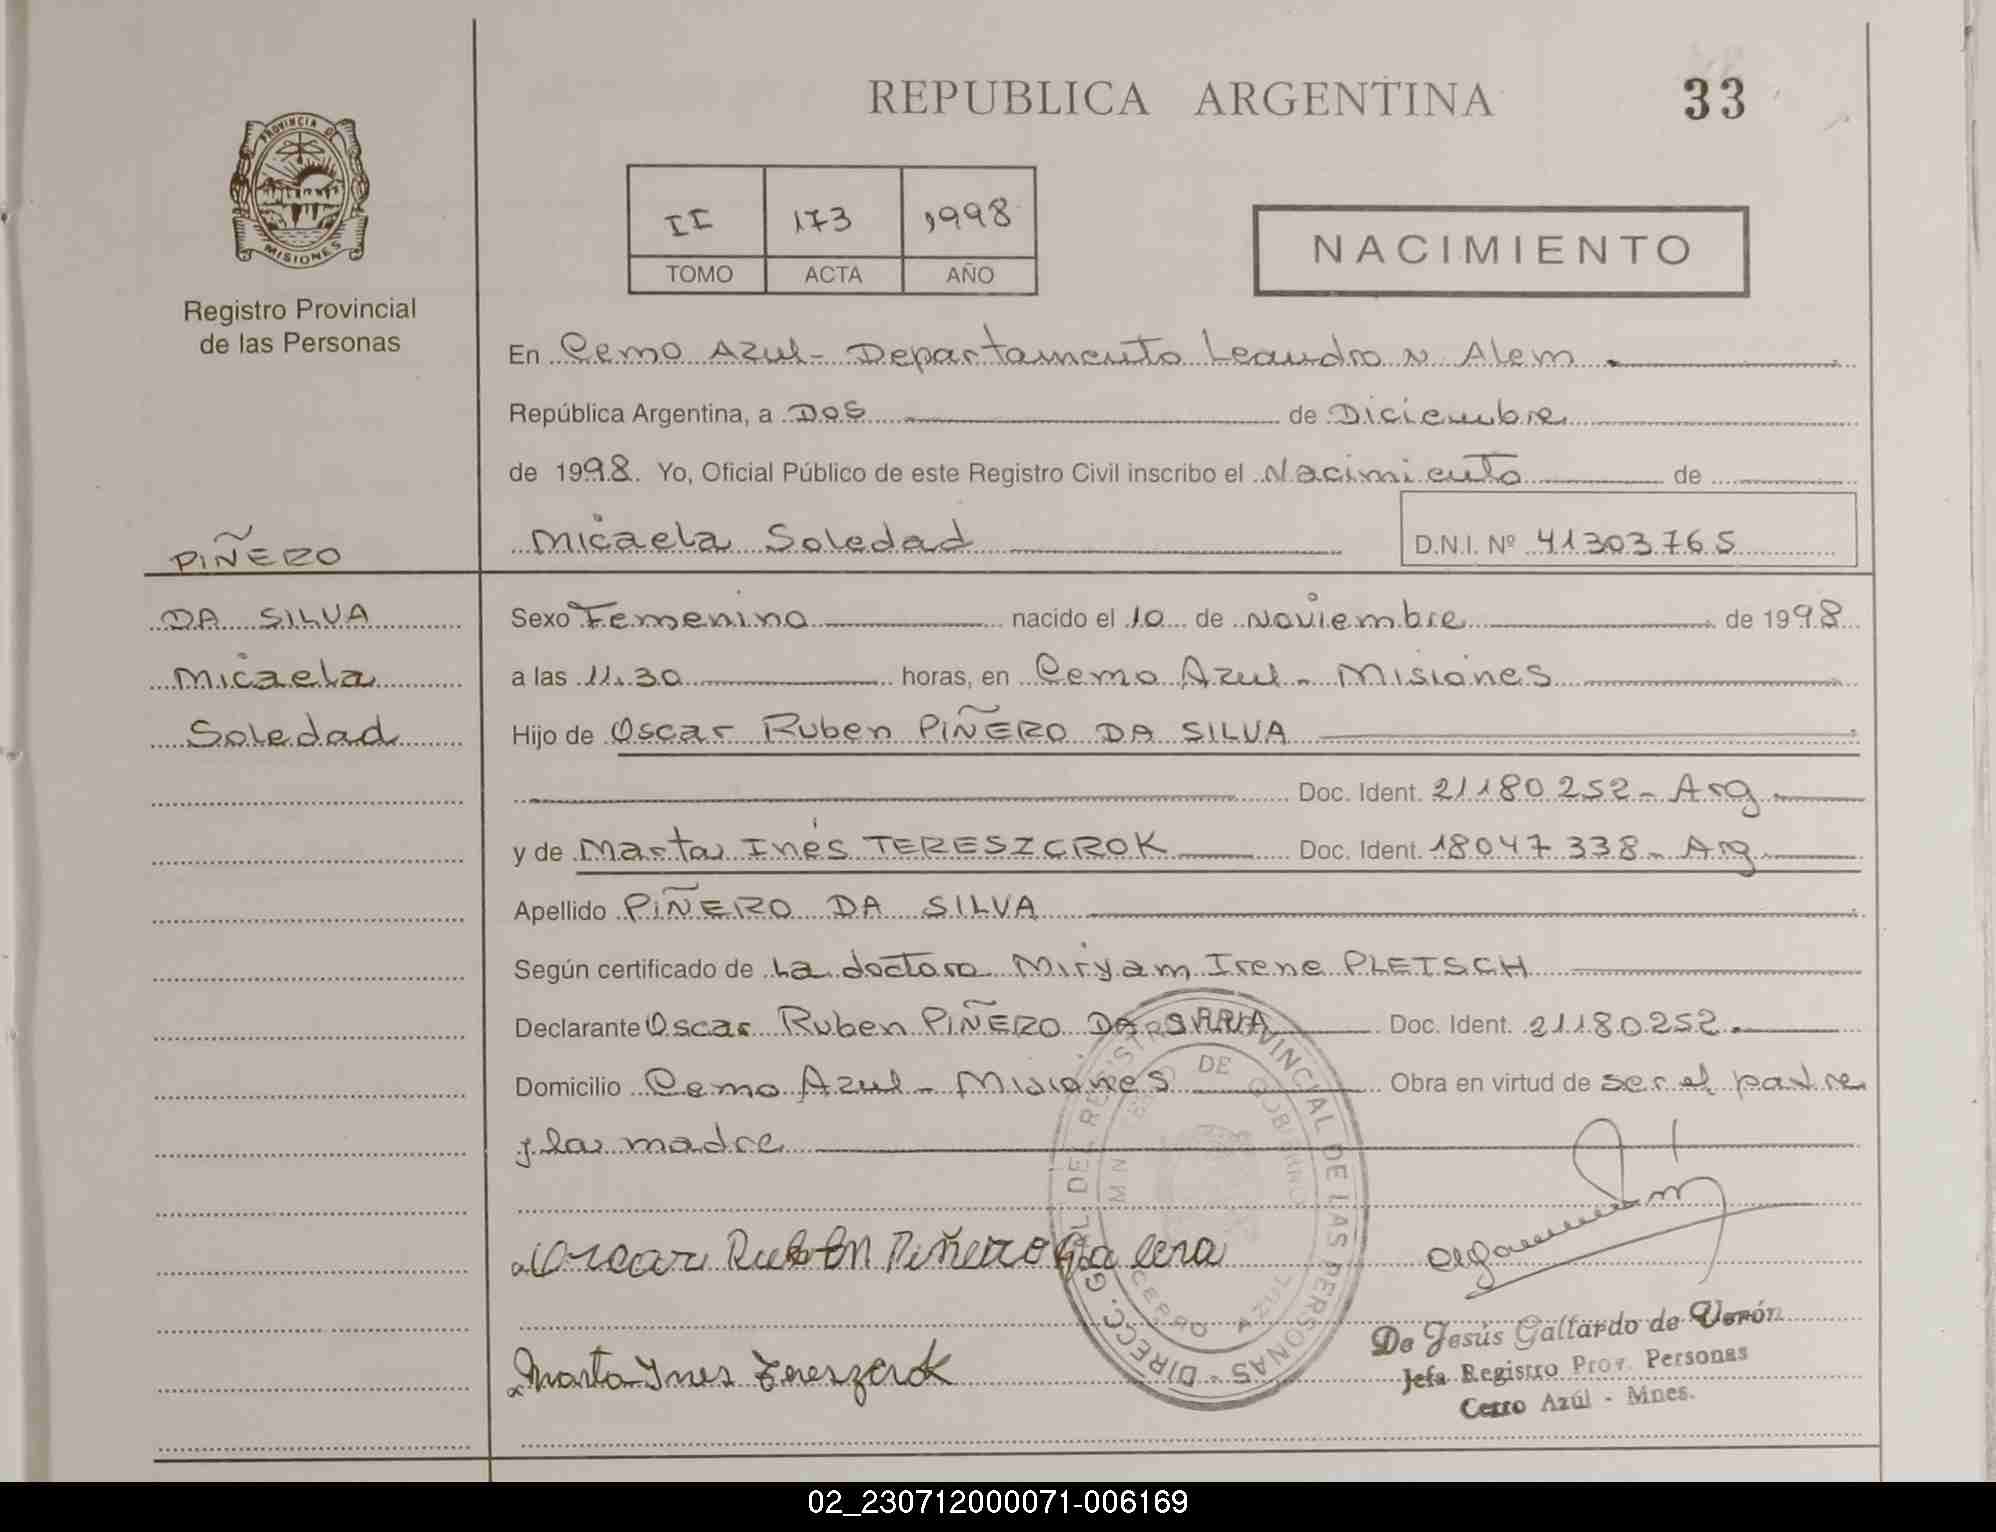 REPUBLICA ARGENTINA
33
PROVINCIA DE
MISIONES
Registro Provincial
de las Personas
II 173 1998
TOMO ACTA AÑO
NACIMIENTO
En Cerro Azul - Departamento Leandro N Alem
República Argentina, a Dos de Diciembre
de 1998. Yo, Oficial Público de este Registro Civil inscribo el Nacimiento de
Micaela Soledad D.N.I. Nº 41303765
PIÑERO
DA SILVA
Micaela
Soledad
Sexo Femenino nacido el 10 de Noviembre de 1998
a las 11.30 horas, en Cerro Azul - Misiones
Hijo de Oscar Ruben PIÑERO DA SILVA
Doc. Ident. 21180252 - Arg
y de Marta Inés TERESZCROK Doc. Ident. 18047338 - Arg
Apellido PIÑERO DA SILVA
Según certificado de La doctora Miryam Irene PLETSCH
Declarante Oscar Ruben PIÑERO DA SILVA Doc. Ident. 21180252.
Domicilio Cerro Azul - Misiones Obra en virtud de ser el padre
y la madre
DIRECC. GRAL. DEL REGISTRO PROVINCIAL DE LAS PERSONAS
MINISTERIO DE GOBIERNO
CERRO AZUL
Oscar Rubén Piñero
Marta Ines Tereszcrok
De Jesús Gallardo de Verón
Jefa Registro Prov. Personas
Cerro Azúl - Mnes.
02_230712000071-006169